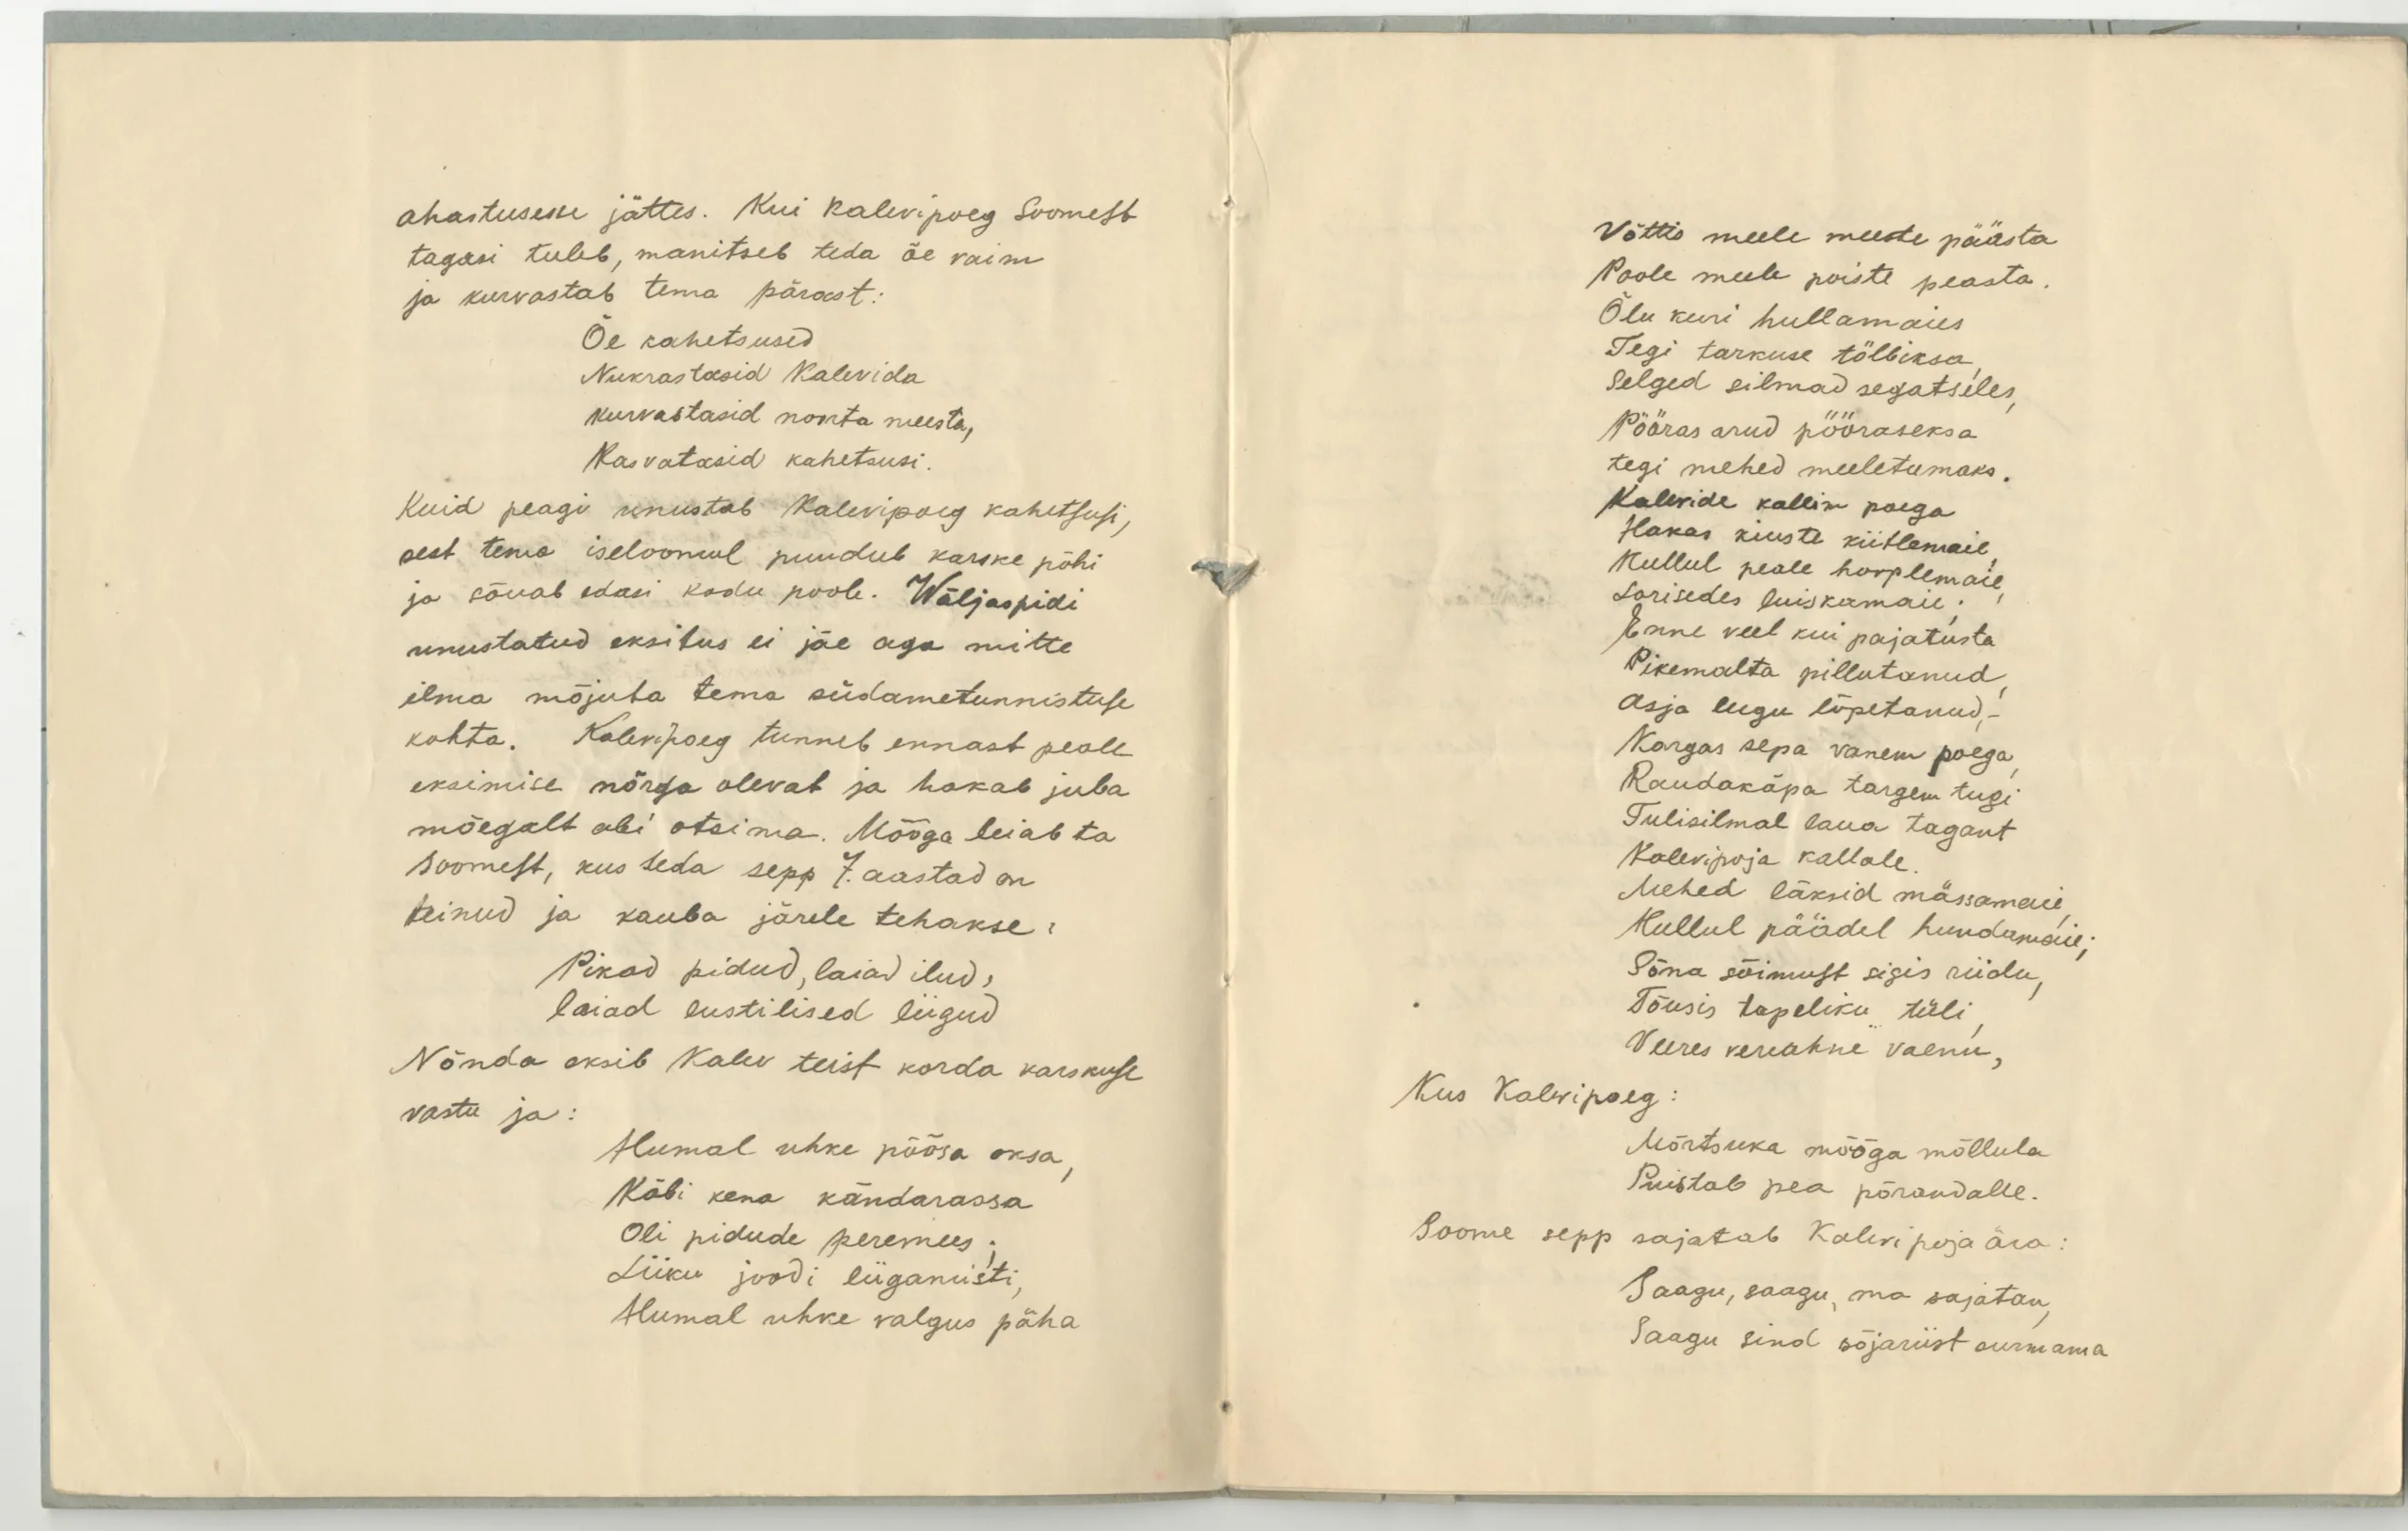 ahastusesse jättes. Kui Kalevipoeg Soomest
tagasi tuleb, manitseb teda õe vaim
ja kurvastab tema pärast:
Õe kahetsused
Nukrastasid Kalevida
kurvastasid noorta meesta,
Kasvatasid kahetsusi.
Kuid peagi unustab Kalevipoeg kahetsusi,
sest tema iseloomul puudub karske põhi
ja sõuab edasi kodu poole. Wäljaspidi
unustatud eksitus ei jäe aga mitte
ilma mõjuta tema südametunnistuse
kohta. Kalevipoeg tunneb ennast peale
eksimise nõrga olevat ja hakab juba
mõegalt abi otsima. Mõõga leiab ta
Soomest, kus seda sepp 7. aastad on
teinud ja kauba järele tehakse:
Pikad pidud, laiad ilud,
laiad lustilised liigud
Nõnda eksib Kalev teist korda karskuse
vastu ja:
Humal uhke põõsa oksa,
Käbi kena kändarassa
Oli pidude peremees;
Liiku joodi liigamisti,
Humal uhke valgus päha
Võttis meele meeste päästa
Poole meele poiste peasta.
Õlu kuri hullamaies
Tegi tarkuse tölbiksa,
Selged silmad segatseles,
Pööras arud pööraseksa
tegi mehed meeletumaks.
Kalevide kallim poega
Hakas kiuste kiitlemaie,
Kullul peale horplemaie,
Lorisedes luiskamaie;
Enne veel kui pajatusta
Pikemalta pillutanud,
Asja lugu lõpetanud,-
Kargas sepa vanem poega,
Raudakäpa targem tugi
Tulisilmal laua tagant
Kalevipoja kallale.
Mehed läksid mässamaie,
Hullul päädel hundamaie;
Sõna sõimust sigis riidu,
Tõusis tapeliku tüli,
Veeres vereahne vaenu,
Kus Kalevipoeg:
Mõrtsuka mõõga möllula
Puistab pea põrandalle.
Soome sepp sajatab Kalevipoja ära:
Saagu, saagu, ma sajatan,
Saagu sind sõjariist surmama